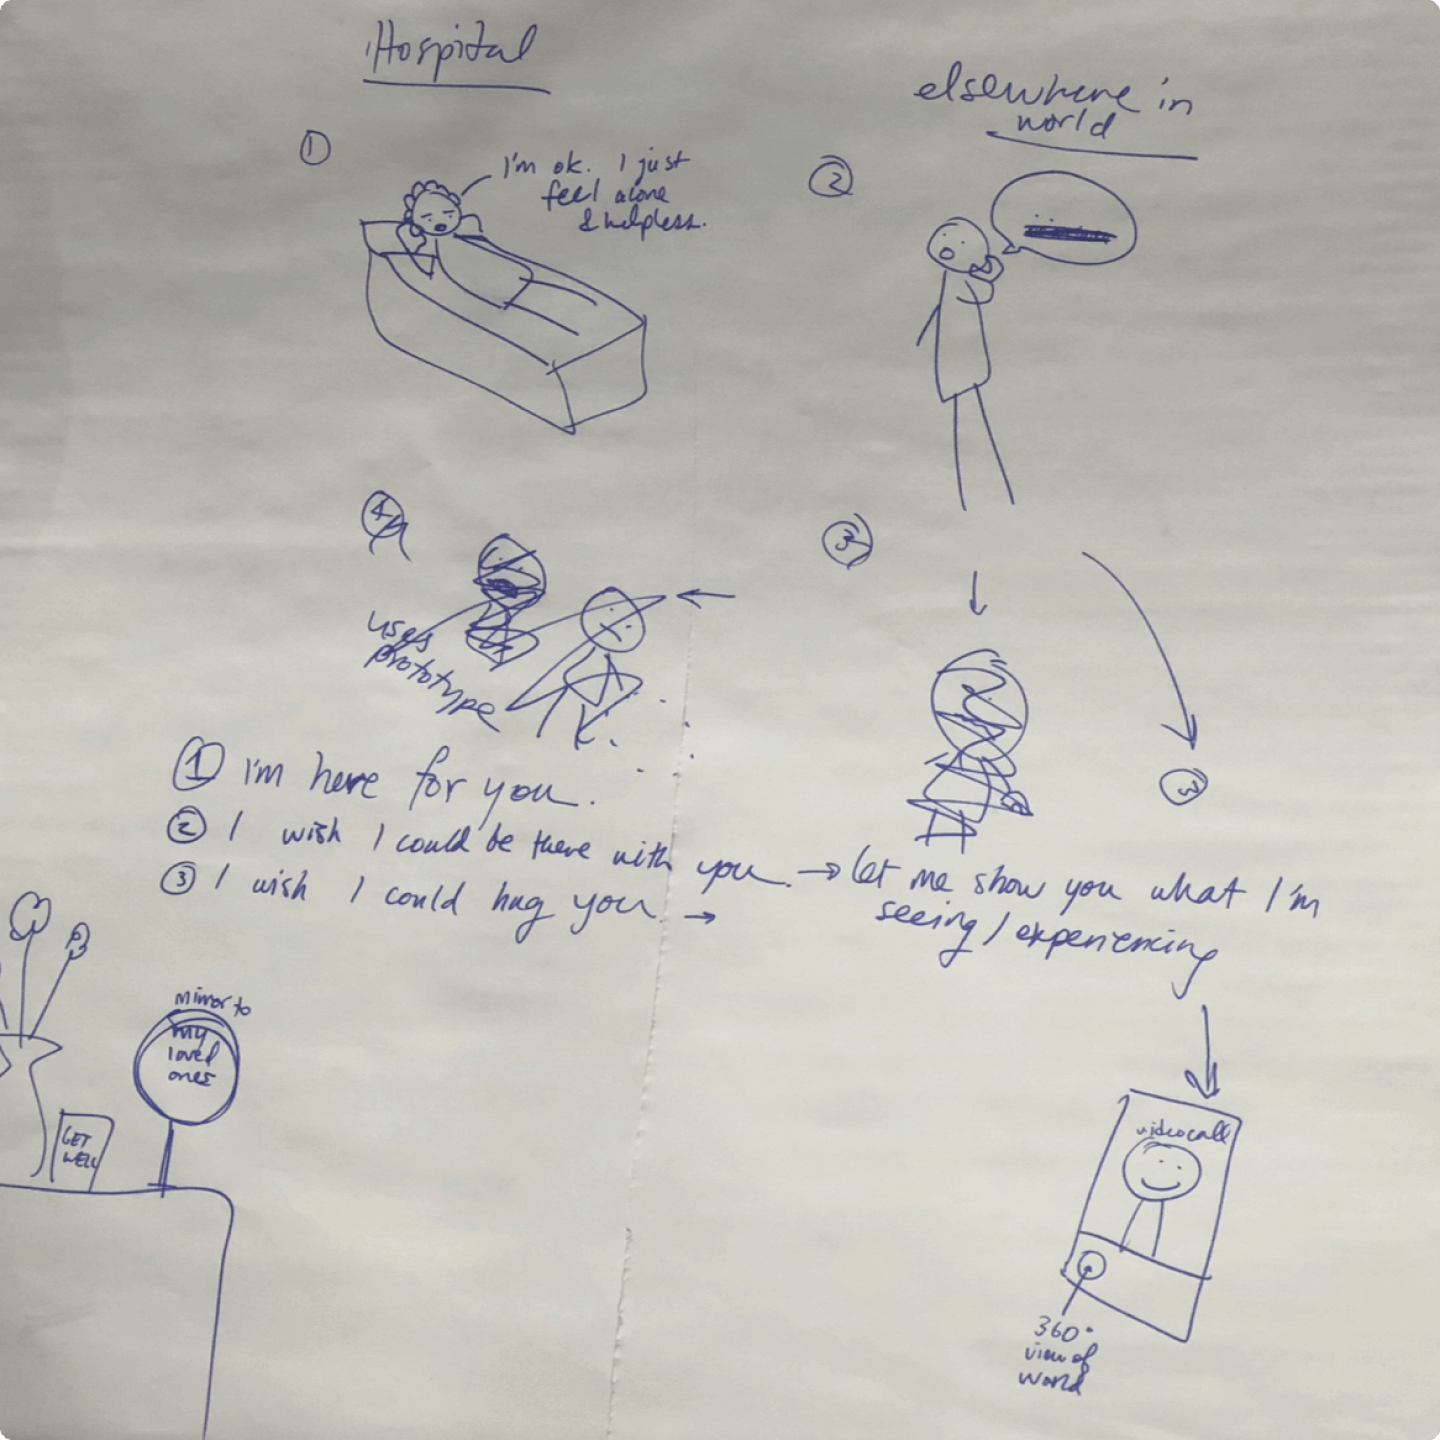 Hospital
elsewhere in
world
①
I'm ok. I just
feel alone
& helpless.
②
④
uses
prototype
③
③
① I'm here for you.
② I wish I could be there with you. → let me show you what I'm
seeing / experiencing
③ I wish I could hug you →
mirror to
my
loved
ones
GET
WELL
videocall
360°
view of
world